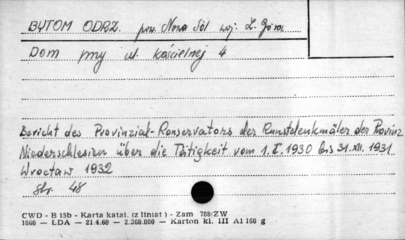 BYTOM ODRZ. pow. Nowa Sól woj: Z. Góra
Dom przy ul. kościelnej 4
Bericht des Provinzial-Konservators der Kunstdenkmäler der Provinz
Niederschlesien über die Tätigkeit vom 1.I.1930 bis 31.XII.1931.
Wrocław 1932
str. 48
CWD - B 15b - Karta katal. (z liniat) - Zam 788/ZW
1060 — LDA — 21.4.60 - 2.360.000 — Karton kl. III A1 160 g